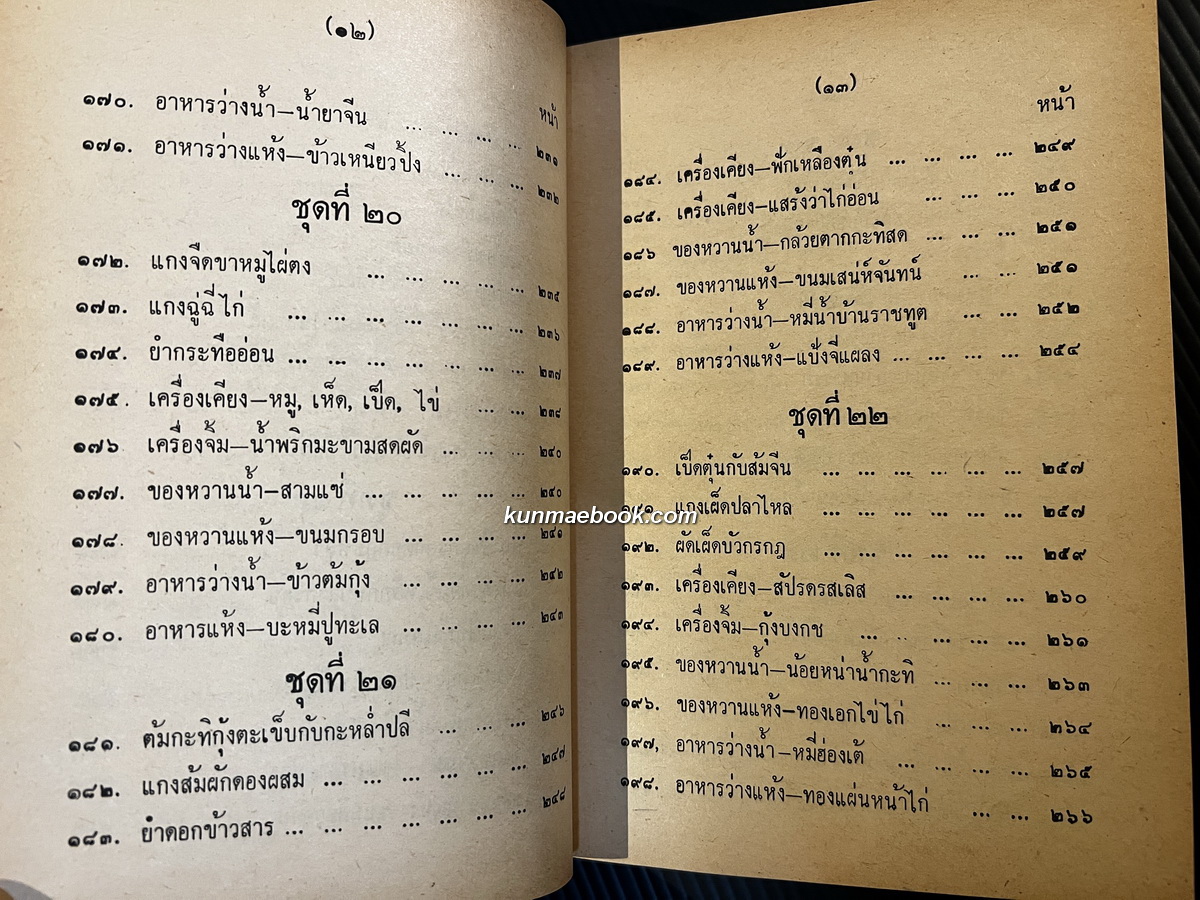 (๑๒)
หน้า
๑๗๐. อาหารว่างน้ำ—น้ำยาจีน ... ... ... ... ๒๓๑
๑๗๑. อาหารว่างแห้ง—ข้าวเหนียวปิ้ง ... ... ... ๒๓๒
ชุดที่ ๒๐
๑๗๒. แกงจืดขาหมูไผ่ตง ... ... ... ... ... ๒๓๕
๑๗๓. แกงฉู่ฉี่ไก่ ... ... ... ... ... ... ... ๒๓๖
๑๗๔. ยำกระทืออ่อน ... ... ... ... ... ... ... ๒๓๗
๑๗๕. เครื่องเคียง—หมู, เห็ด, เป็ด, ไข่ ... ... ๒๓๘
๑๗๖ เครื่องจิ้ม—น้ำพริกมะขามสดผัด ... ... ... ๒๔๐
๑๗๗. ของหวานน้ำ—สามแซ่ ... ... ... ... ... ๒๔๐
๑๗๘. ของหวานแห้ง—ขนมกรอบ ... ... ... ... ๒๔๑
๑๗๙. อาหารว่างน้ำ—ข้าวต้มกุ้ง ... ... ... ... ๒๔๒
๑๘๐. อาหารแห้ง—บะหมี่ปูทะเล ... ... ... ... ๒๔๓
ชุดที่ ๒๑
๑๘๑. ต้มกะทิกุ้งตะเข็บกับกะหล่ำปลี ... ... ... ๒๔๖
๑๘๒. แกงส้มผักดองผสม ... ... ... ... ... ... ๒๔๗
๑๘๓. ยำดอกข้าวสาร ... ... ... ... ... ... ... ๒๔๘
(๑๓)
หน้า
๑๘๔. เครื่องเคียง—ฟักเหลืองตุ๋น ... ... ... ... ๒๔๙
๑๘๕. เครื่องเคียง—แสร้งว่าไก่อ่อน ... ... ... ๒๕๐
๑๘๖ ของหวานน้ำ—กล้วยตากกะทิสด ... ... ... ๒๕๑
๑๘๗. ของหวานแห้ง—ขนมเสน่ห์จันทน์ ... ... ๒๕๑
๑๘๘. อาหารว่างน้ำ—หมี่น้ำบ้านราชทูต ... ... ๒๕๒
๑๘๙. อาหารว่างแห้ง—แป้งจี่แผลง ... ... ... ... ๒๕๔
ชุดที่ ๒๒
๑๙๐. เป็ดตุ๋นกับส้มจีน ... ... ... ... ... ... ๒๕๗
๑๙๑. แกงเผ็ดปลาไหล ... ... ... ... ... ... ๒๕๗
๑๙๒. ผัดเผ็ดบัวกรกฎ ... ... ... ... ... ... ๒๕๙
๑๙๓. เครื่องเคียง—สัปรดรสเลิส ... ... ... ... ๒๖๐
๑๙๔. เครื่องจิ้ม—กุ้งบงกช ... ... ... ... ... ๒๖๑
๑๙๕. ของหวานน้ำ—น้อยหน่าน้ำกะทิ ... ... ... ๒๖๓
๑๙๖. ของหวานแห้ง—ทองเอกไข่ไก่ ... ... ... ๒๖๔
๑๙๗, อาหารว่างน้ำ—หมี่ฮ่องเต้ ... ... ... ... ๒๖๕
๑๙๘. อาหารว่างแห้ง—ทองแผ่นหน้าไก่ ... ... ๒๖๖
kunmaebook.com